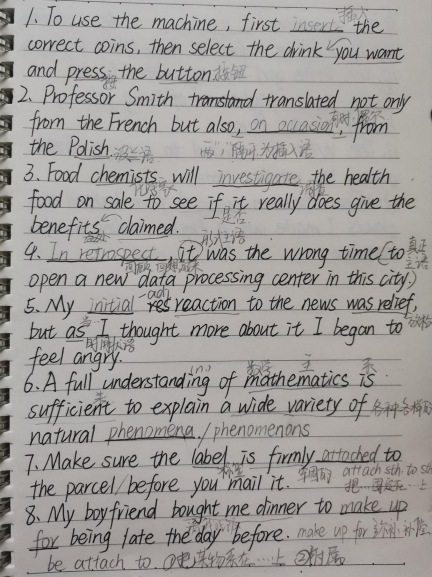 插入
1. To use the machine, first insert the
correct coins, then select the drink you want
and press the button 按钮
按
2. Professor Smith transland translated not only
from the French but also, on occasion, from 有时、偶尔
the Polish 波兰语 两","隔开为插入语
3. Food chemists will investigate the health
化学家 调查
food on sale to see if it really does give the
是否
benefits claimed.
形式主语
4. In retrospect, it was the wrong time (to 真正主语
回顾
open a new data processing center in this city.)
5. My initial res reaction to the news was relief,
but as I thought more about it I began to
时间状语
feel angry.
(n.) 数学 主 系
6. A full understanding of mathematics is
sufficient to explain a wide variety of 各种各样的
natural phenomena / phenomenons
7. Make sure the label is firmly attached to
标签 牢固的 attach sth. to sth
the parcel / before you mail it.
8. My boyfriend bought me dinner to make up
for being late the day before. make up for 弥补、补偿
be attach to ①把某物系在……上 ②附属